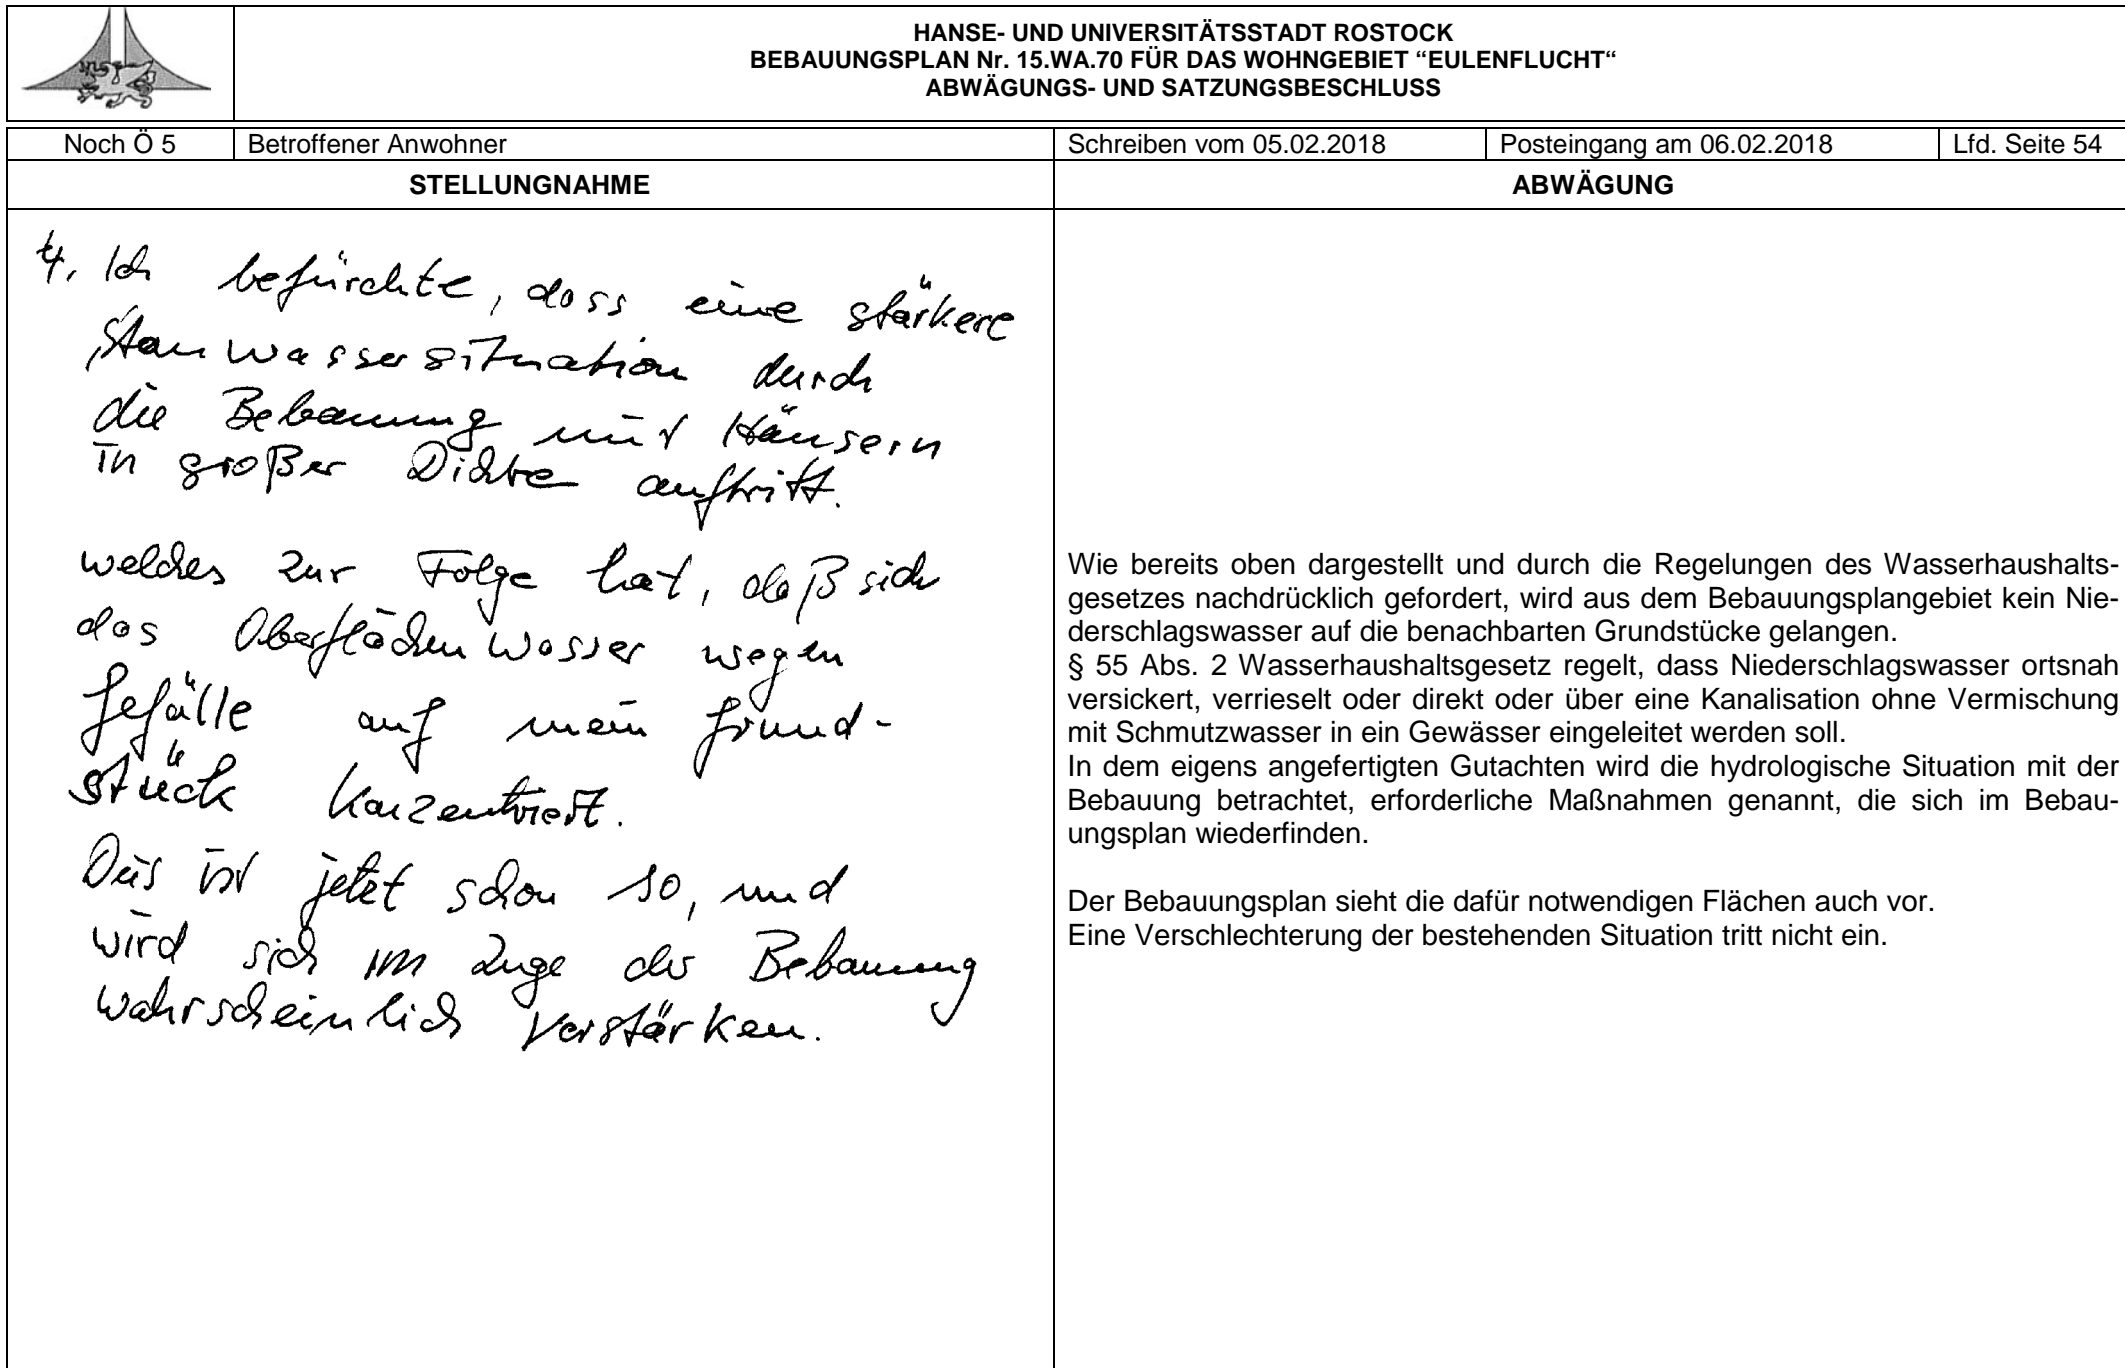 HANSE- UND UNIVERSITÄTSSTADT ROSTOCK
BEBAUUNGSPLAN Nr. 15.WA.70 FÜR DAS WOHNGEBIET “EULENFLUCHT“
ABWÄGUNGS- UND SATZUNGSBESCHLUSS
Noch Ö 5 Betroffener Anwohner Schreiben vom 05.02.2018 Posteingang am 06.02.2018 Lfd. Seite 54
STELLUNGNAHME
4. Ich befürchte, dass eine stärkere
Stauwassersituation durch
die Bebauung mit Häusern
in großer Dichte auftritt.
welches zur Folge hat, daß sich
das Oberflächenwasser wegen
Gefälle auf mein Grund-
stück konzentriert.
Dies ist jetzt schon so, und
wird sich im Zuge der Bebauung
wahrscheinlich verstärken.
ABWÄGUNG
Wie bereits oben dargestellt und durch die Regelungen des Wasserhaushalts-
gesetzes nachdrücklich gefordert, wird aus dem Bebauungsplangebiet kein Nie-
derschlagswasser auf die benachbarten Grundstücke gelangen.
§ 55 Abs. 2 Wasserhaushaltsgesetz regelt, dass Niederschlagswasser ortsnah
versickert, verrieselt oder direkt oder über eine Kanalisation ohne Vermischung
mit Schmutzwasser in ein Gewässer eingeleitet werden soll.
In dem eigens angefertigten Gutachten wird die hydrologische Situation mit der
Bebauung betrachtet, erforderliche Maßnahmen genannt, die sich im Bebau-
ungsplan wiederfinden.
Der Bebauungsplan sieht die dafür notwendigen Flächen auch vor.
Eine Verschlechterung der bestehenden Situation tritt nicht ein.